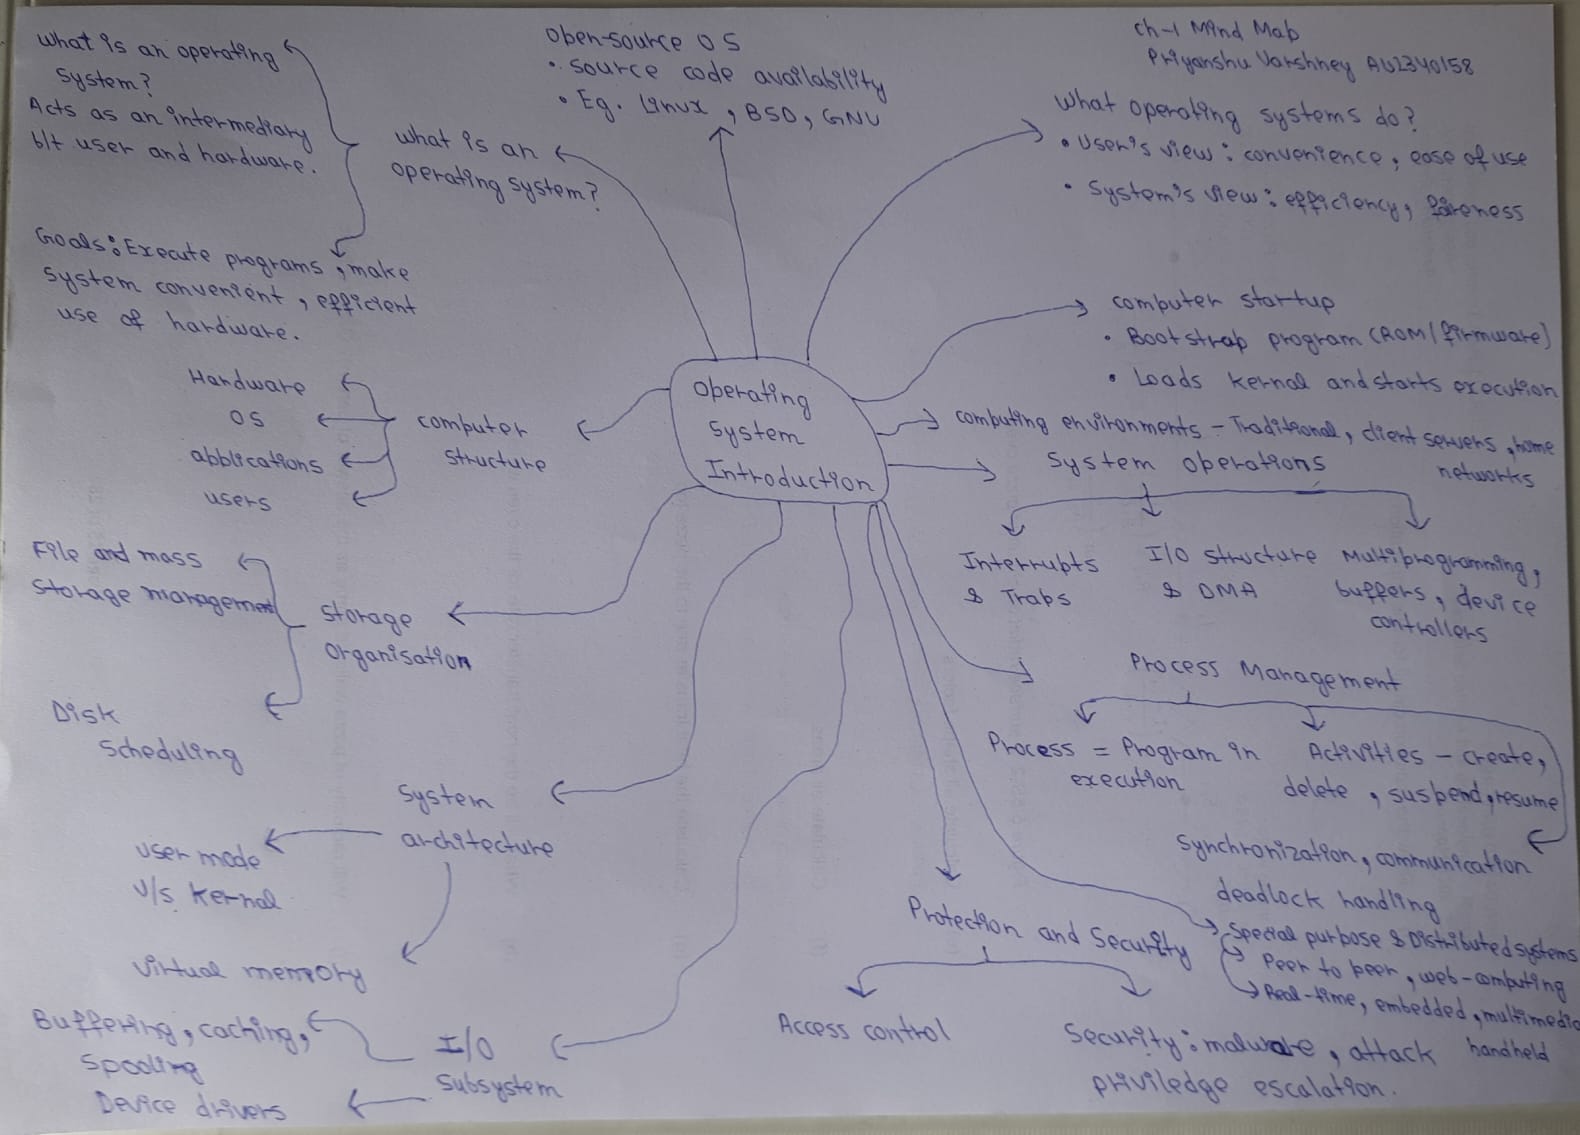 Ch-1 Mind Map
Priyanshu Varshney AU2340158
Operating
System
Introduction
What is an
operating system?
What is an operating
system?
Acts as an intermediary
b/t user and hardware.
Goals: Execute programs, make
system convenient, efficient
use of hardware.
Open-source OS
• source code availability
• Eg. Linux, BSD, GNU
What operating systems do?
• User's view: convenience, ease of use
• System's view: efficiency, faireness
Computer startup
• Bootstrap program (ROM/firmware)
• Loads kernel and starts execution
computing environments - Traditional, client servers, home
networks
System operations
Interrupts
& Traps
I/O structure
& DMA
Multiprogramming,
buffers, device
controllers
Process Management
Process = Program in
execution
Activities - create,
delete, suspend, resume
Synchronization, communication
deadlock handling
Special purpose & Distributed systems
Peer to peer, web-computing
Real-time, embedded, multimedia
handheld
Protection and Security
Access control
Security: malware, attack
priviledge escalation.
computer
structure
Hardware
OS
applications
users
Storage
Organisation
File and mass
storage management
Disk
scheduling
System
architecture
user mode
v/s kernal
virtual memory
I/O
subsystem
Buffering, caching,
spooling
Device drivers